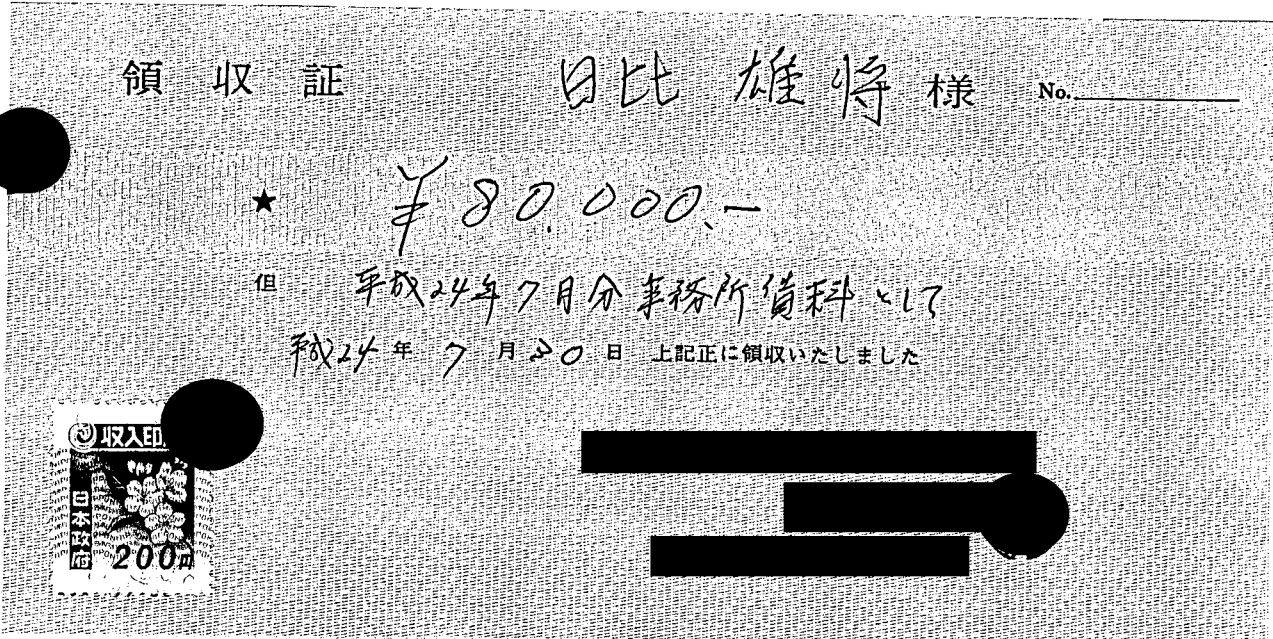 領収証 日比 雄将 様 No.
★ ¥80,000.-
但 平成24年7月分事務所賃料として
平成24年 7月30日 上記正に領収いたしました
収入印
日本政府
200円